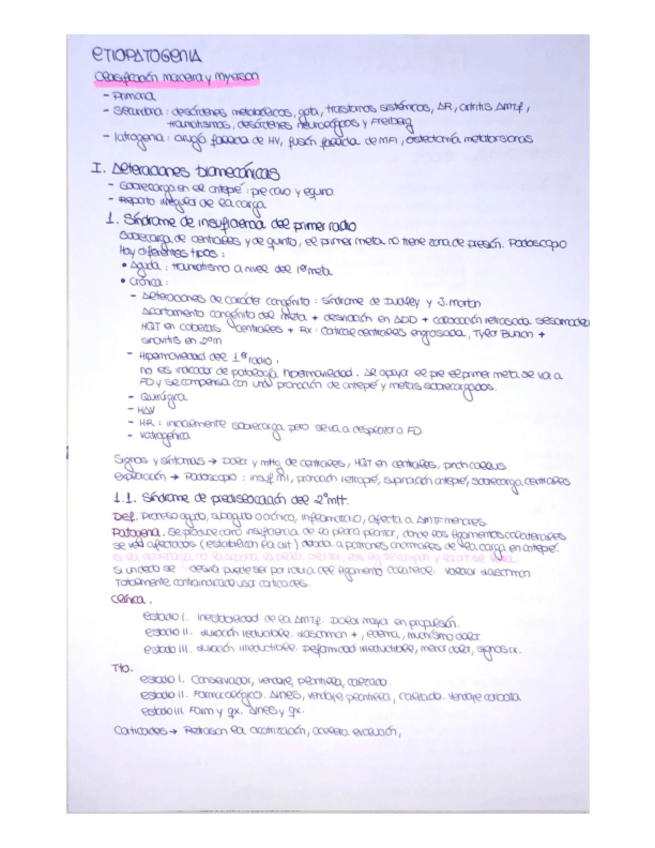 ETIOPATOGENIA
Clasificación maceira y Myerson
- Primaria
- Secundaria: desórdenes metabólicos, gota, trastornos sistémicos, AR, artritis AMTF,
traumatismos, desórdenes neurológicos y Freiberg
- Iatrogenia: cirugía fallida de HV, fusión fallida de MF1, osteotomía metatarsianas
I. Alteraciones biomecánicas
- Sobrecarga en el antepié: pie cavo y equino
- Reparto irregular de la carga
1. Síndrome de insuficiencia del primer radio
Sobrecarga de centrales y de quinto, el primer meta no tiene zona de presión. Podoscopio
Hay diferentes tipos:
• Aguda: traumatismo a nivel del 1er meta
• Crónica:
- Alteraciones de carácter congénito: síndrome de Dudley y J. morton
Acortamiento congénito del meta + desviación en ADD + colocación retrasada sesamoideo
HQT en cabezas centrales + Rx: cortical centrales engrosada, Tylor Bunion +
sinovitis en 2ºm
- Hipermovilidad del 1er radio,
no es indicador de patología hipermovilidad. Al apoyar el pie el primer meta se va a
FD y se compensa con una pronación de antepié y metas sobrecargados.
- Quirúrgica
- HAV
- HR: inicialmente sobrecarga pero se va a desplazar a FD
- Iatrogénica
Signos y síntomas → Dolor y mttg de centrales, HQT en centrales, pinch callus
Exploración → Podoscopio: insuf M1, pronación retropié, supinación antepié, sobrecarga centrales
1.1. Síndrome de predislocación del 2ºmtt.
Def. Proceso agudo, subagudo o crónico, inflamatorio, afecta a AMTF menores
Patogenia. Se produce como insuficiencia de la placa plantar, donde los ligamentos colaterales
se ven afectados (estabilizan la art) debido a patrones anormales de la carga en antepié.
Si un dedo se desvía puede ser por rotura del ligamento colateral. Valorar lassman
Totalmente contraindicado usar corticoides.
Clínica.
estadio I. Inestabilidad de la AMTF. Dolor mayor en propulsión.
estadio II. luxación reducible. lassman +, edema, muchísimo dolor
estadio III. luxación irreductible. Deformidad irreductible, menor dolor, signos rx.
Tto.
estadio I. Conservador, vendaje, plantilla, calzado.
estadio II. Farmacológico. AINES, vendaje plantilla, calzado. vendaje corbata
estadio III. Farm y qx. AINES y qx.
Corticoides → Retrasan la cicatrización, acelera evolución,